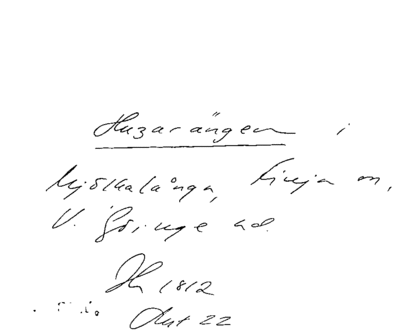 Huzarängen i
Mjölkalånga, Finja sn,
V. Göinge hd.
JH 1812
Akt 22